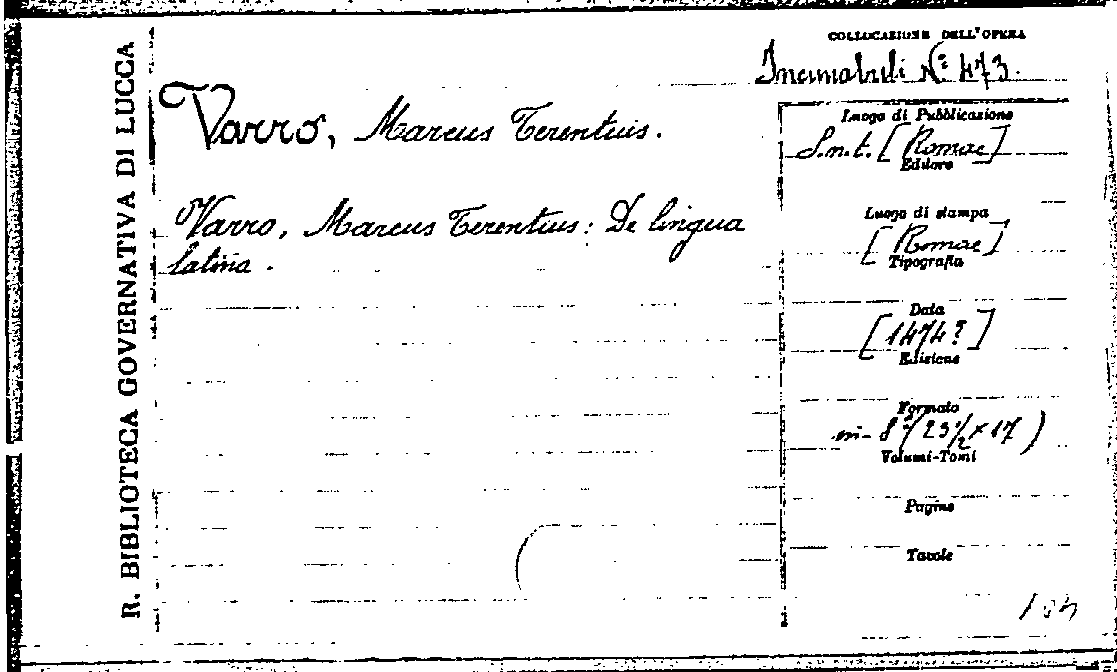 R. BIBLIOTECA GOVERNATIVA DI LUCCA
COLLOCAZIONE DELL'OPERA
Incunabuli N.º 473.
Varro, Marcus Terentius.
Varro, Marcus Terentius: De lingua
latina.
Luogo di Pubblicazione
S.n.t. [Romae]
Editore
Luogo di stampa
[Romae]
Tipografia
Data
[1474?]
Edizione
Formato
in-8º (23½×17)
Volumi-Tomi
Pagine
Tavole